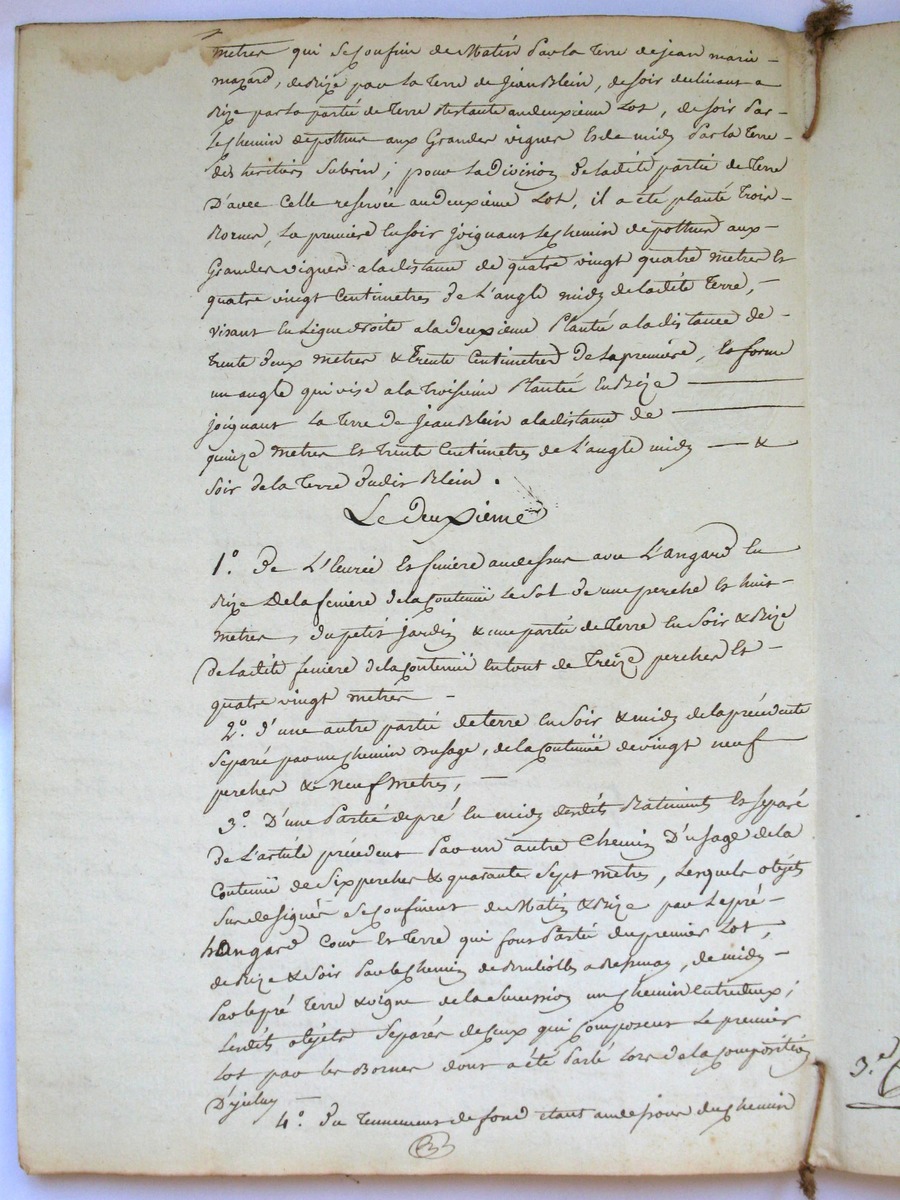 metres qui se confine de matin par la terre de jean marie
mazard, de Bize par la terre de Jean Blein, de soir declinant a
Bize par la partie de terre restante au deuxième Lot, de soir par
le chemin de pothus aux Grandes vignes et de midy par la terre
des heritiers Subrin; pour la division de la dité partie de terre
D'avec celle reservée au deuxième Lot, il a été planté trois
Bornes, La première en soir joignant le chemin de pothus aux
Grandes vignes a la distance de quatre vingt quatre metres et
quatre vingt centimetres de L'angle midy de la dité terre,
visant en Ligne droite a la deuxième plantée a la distance de
trente deux metres & trente centimetres de la première, et forme
un angle qui vise a la troisieme plantée en Bize
joignant la terre de Jean Blein a la distance de
quinze metres et trente centimetres de L'angle midy &
soir de la terre dudit Blein.
Le deuxième
1°. De L'Eurie et feniere au dessus avec L'angard en
Bize de la feniere de la contenüe le sol de une perche et huit
metres, du petit jardin & une partie de terre en soir & Bize
de la dité feniere de la contenüe en tout de Treize perches et
quatre vingt metres
2°. d'une autre partie de terre en soir & midy de la précédente
séparée par un chemin d'usage, de la contenüe de vingt neuf
perches & neuf metres,
3°. D'une partie de pré en midy desdits Batiments et séparé
de L'article précédent par un autre chemin D'usage de la
contenüe de six perches & quarante sept metres, Lesquels objets
sus designés se confinent de matin & Bize par le pré
hangard cour et terre qui font partie du premier Lot,
de Bize & soir par le chemin de a, de midy
par le pré terre & vigne de la succession un chemin entredeux;
Lesdits objets separés de ceux qui composent le premier
Lot par les Bornes dont a été parlé lors de la composition
D'iceluy
4°. Du tennement de fond étant au de chemin
3.e